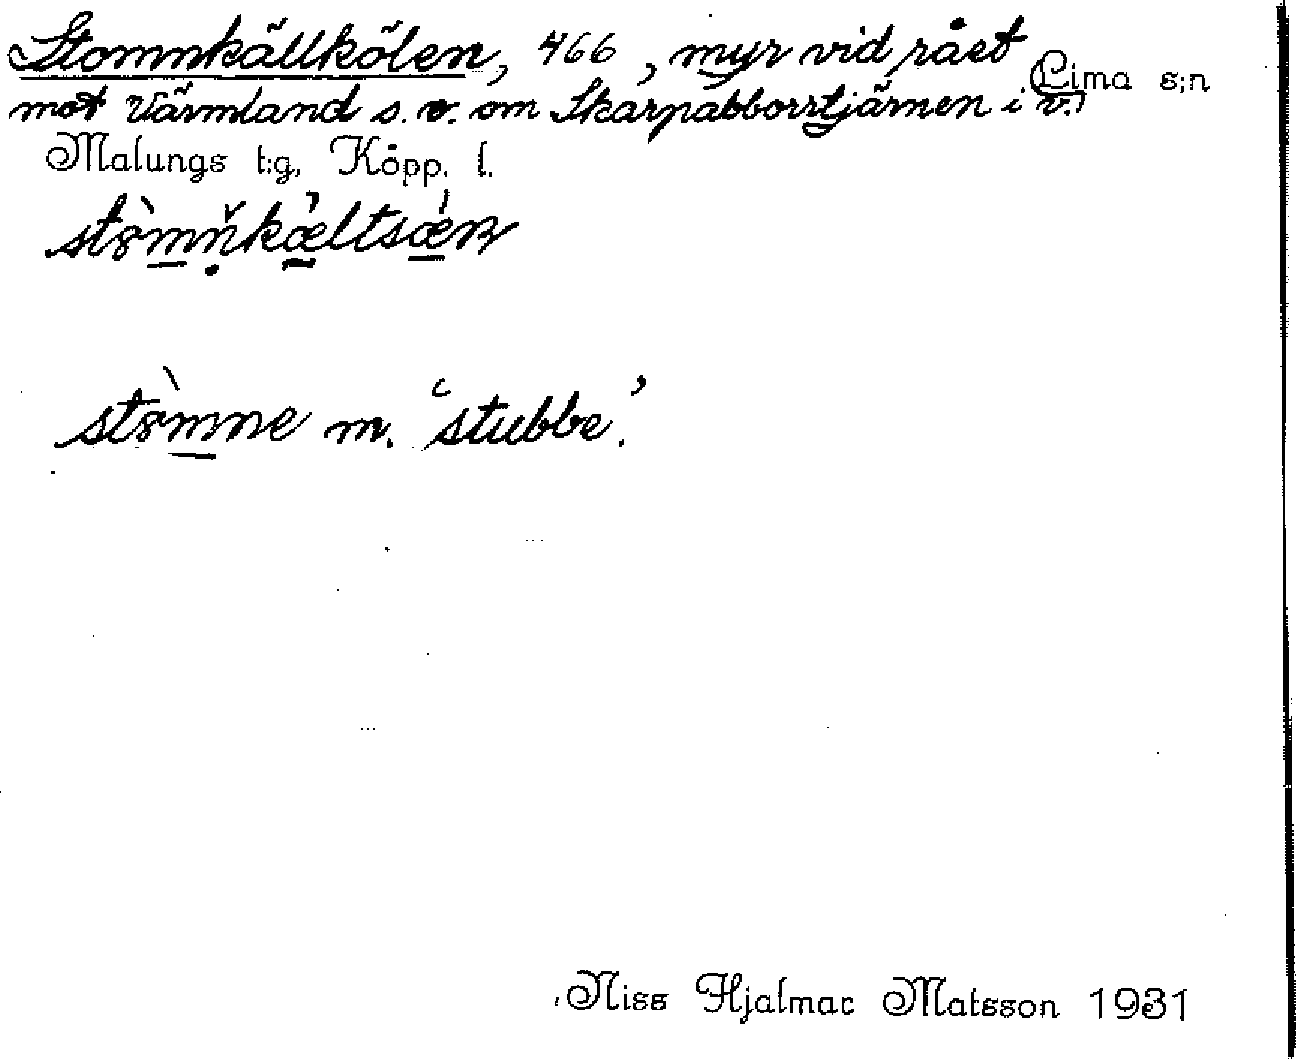 Stomnkällkölen, 466, myr vid rået Lima s:n
mot Värmland s.v. om Skarpabborrtjärnen i v.
Malungs t:g, Kopp. l.
stòmn̥kæltsæn
stòmne m. ‘stubbe.’
Niss Hjalmar Matsson 1931